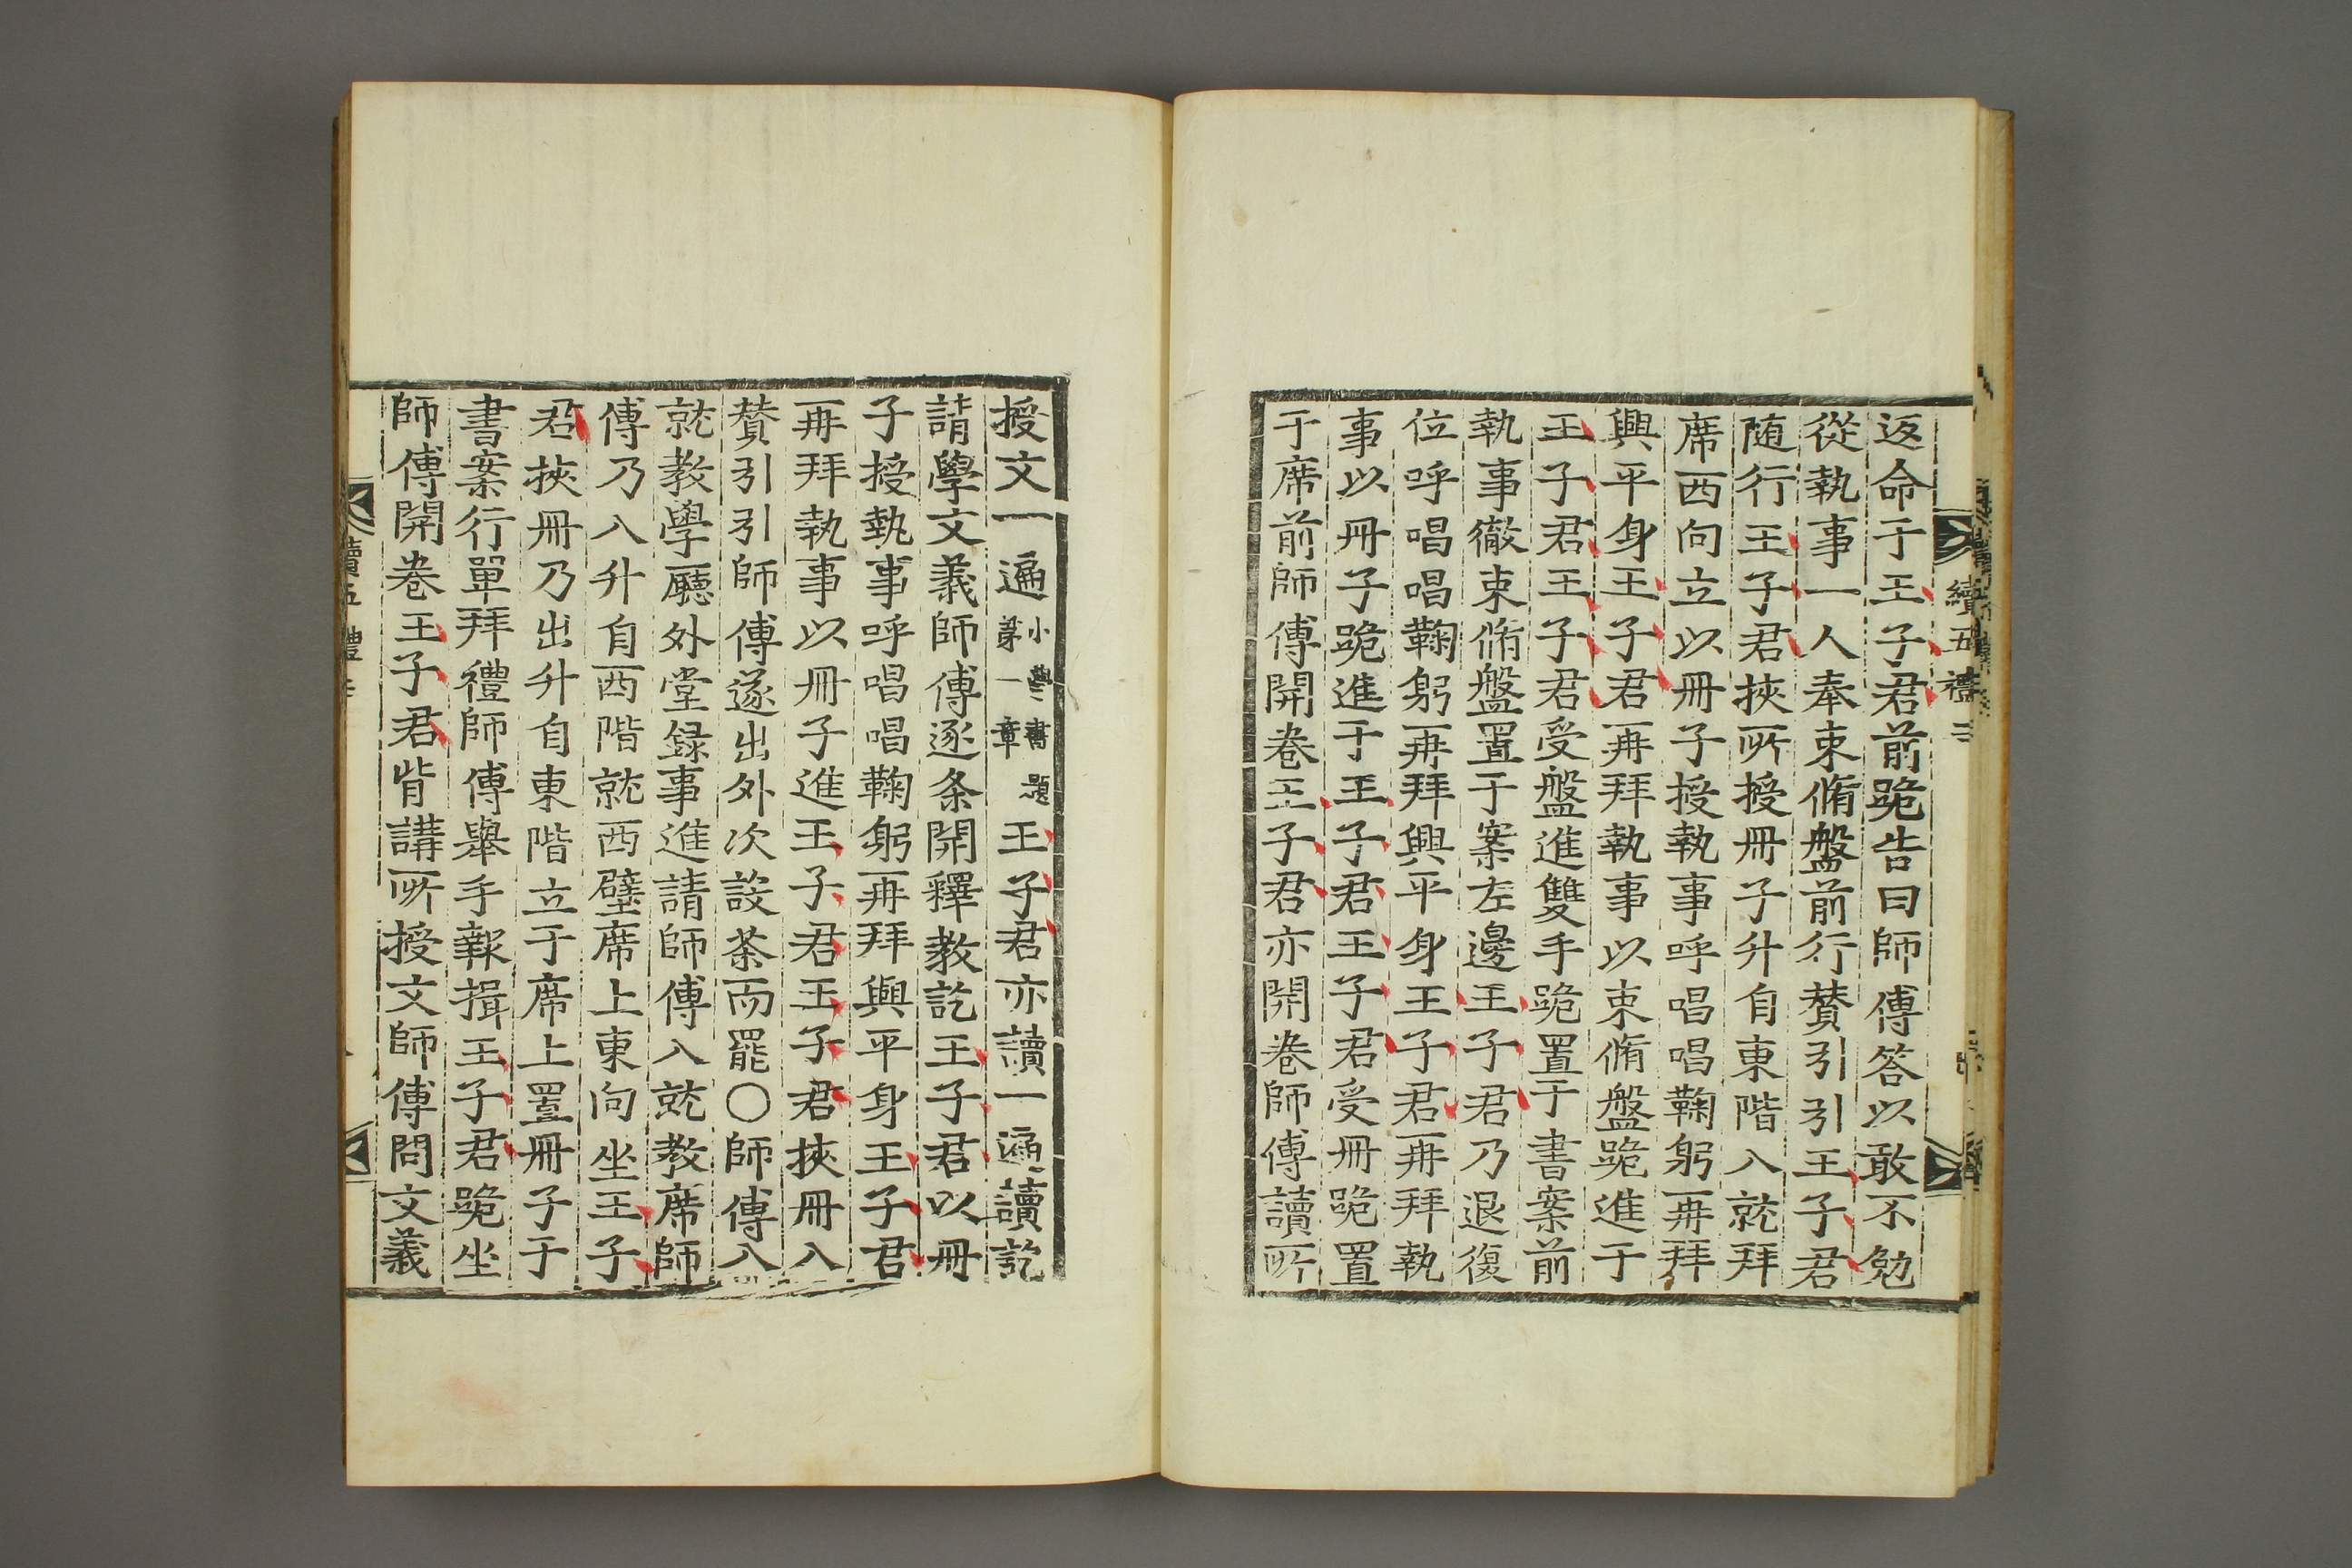 返命于王子君前跪告曰師傅答以敢不勉
從執事一人奉束脩盤前行賛引引王子君
随行王子君挾所授冊子升自東階入就拜
席西向立以冊子授執事呼唱唱鞠躬再拜
興平身王子君再拜執事以束脩盤跪進于
王子君王子君受盤進雙手跪置于書案前
執事徹束脩盤置于案左邊王子君乃退復
位呼唱唱鞠躬再拜興平身王子君再拜執
事以冊子跪進于王子君王子君受冊跪置
于席前師傅開卷王子君亦開卷師傅讀所
授文一遍小學書題第一章王子君亦讀一遍讀訖
請學文義師傅逐条開釋教訖王子君以冊
子授執事呼唱唱鞠躬再拜興平身王子君
再拜執事以冊子進王子君王子君挾冊入
賛引引師傅遂出外次設茶而罷○師傅入
就教學廳外堂録事進請師傅入就教席師
傅乃入升自西階就西壁席上東向坐王子
君挾冊乃出升自東階立于席上置冊子于
書案行單拜禮師傅舉手報揖王子君跪坐
師傅開卷王子君背講所授文師傅問文義
續五禮